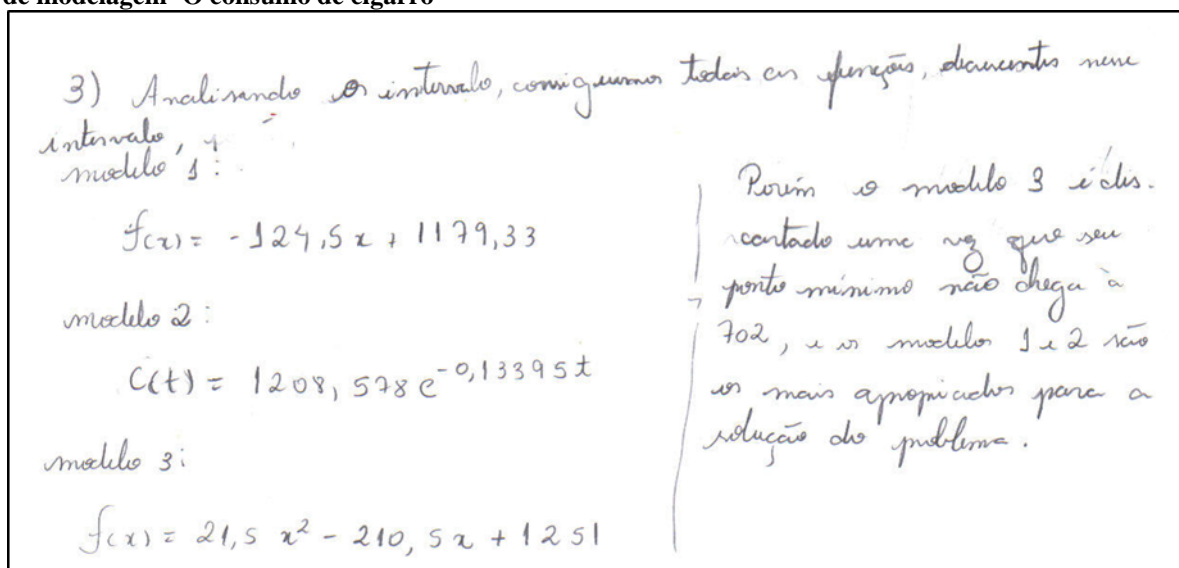 de modelagem "O consumo de cigarro"
3) Analisando os intervalo, conseguimos todas as funções, decrescentes nesse
intervalo,
modelo 1:
f(x) = -124,5x + 1179,33
modelo 2:
C(t) = 1208,578 e^-0,13395t
modelo 3:
f(x) = 21,5 x² - 210,5x + 1251
Porém o modelo 3 é dis-
cartado uma vez que seu
ponto mínimo não chega à
702, e os modelos 1 e 2 são
os mais apropiados para a
solução do problema.